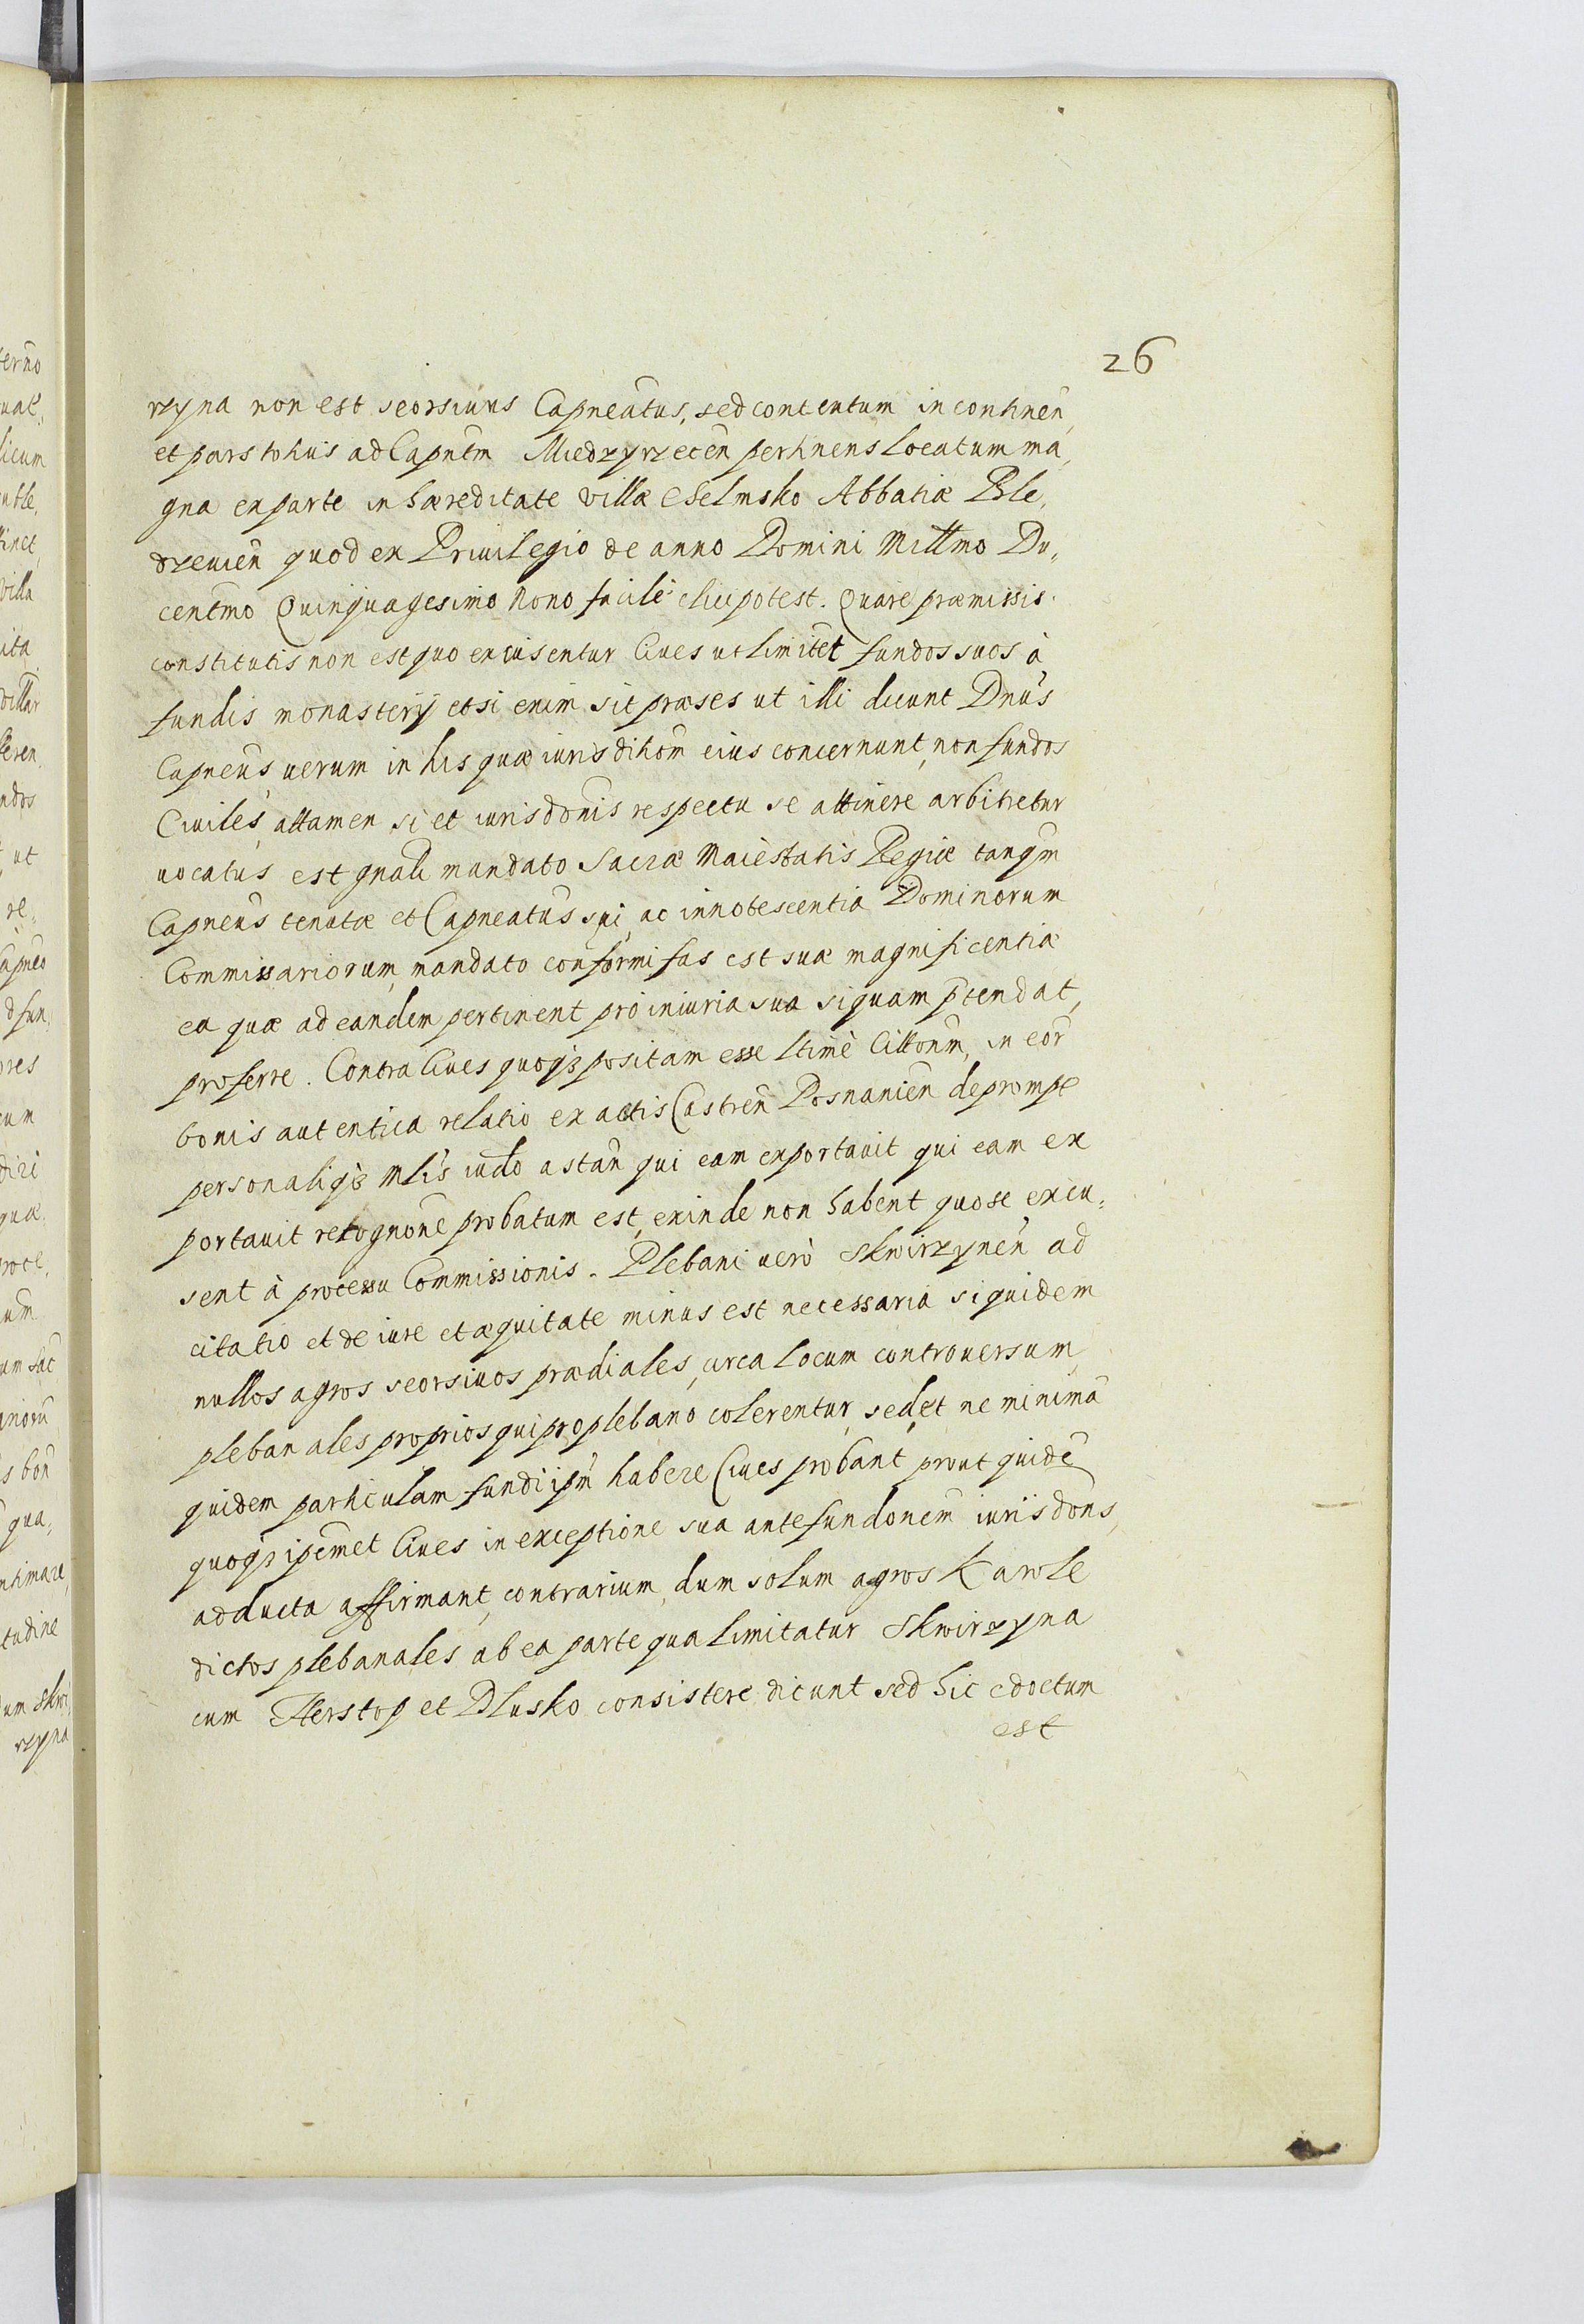 26
rzyna non est seorsiuus Capneatus, sed contentum in continen,
et pars tohus ad Capntm Miedzyrzecen pertinens locatum ma,
gna ex parte in hæreditate villæ Chelmsko Abbatiæ Ble,
dzeuien quod ex Priuilegio de anno Domini Millmo Du,
centmo Quinquagesimo Nono facile elici potest. Quare præmissis
constitutis non est quo excusentur Ciues ut limitet fundos suos à
fundis monasterij etsi enim sit præses ut illi dicunt Dnus
Capneus uerum in his quæ iurisditiom eius concernunt, non fundos
Ciuiles, attamen si et iurisdonis respectu se attinere arbitretur
uocatus est gnali mandato Sacræ Maiestatis Regiæ tanqm
Capneus tenutæ et Capneatus sui, ac innotescentia Dominorum
Commissariorum, mandato conformi fas est suæ magnificentiæ
ea quæ ad eandem pertinent pro iniuria sua siquam ptendat,
proferre. Contra Ciues quoq3 positam esse ltime Cittonm, in eor
bonis autentica relatio ex actis Castren Posnanien deprompt
personaliq3 Mlis iudo astan qui eam exportauit qui eam ex
portauit recognone probatum est, exinde non habent quo se excu,
sent à processu Commissionis. Plebani uerò Skwirzynen ad
citatio et de iure et æquitate minus est necessaria siquidem
nullos agros seorsiuos prædiales, circa locum controuersum,
plebanales proprios qui pro plebano colerentur, sed et ne minima
quidem particulam fundi ipm habere Ciues probant, prout quide
quoq3 ipemet Ciues in exceptione sua ante fundonem iurisdons,
adducta affirmant, contrarium, dum solum agros Karole
dictos plebanales ab ea parte qua limitatur Skwirzyna
cum Herstop et Dlusko consistere dicunt sed hic edoctum
est